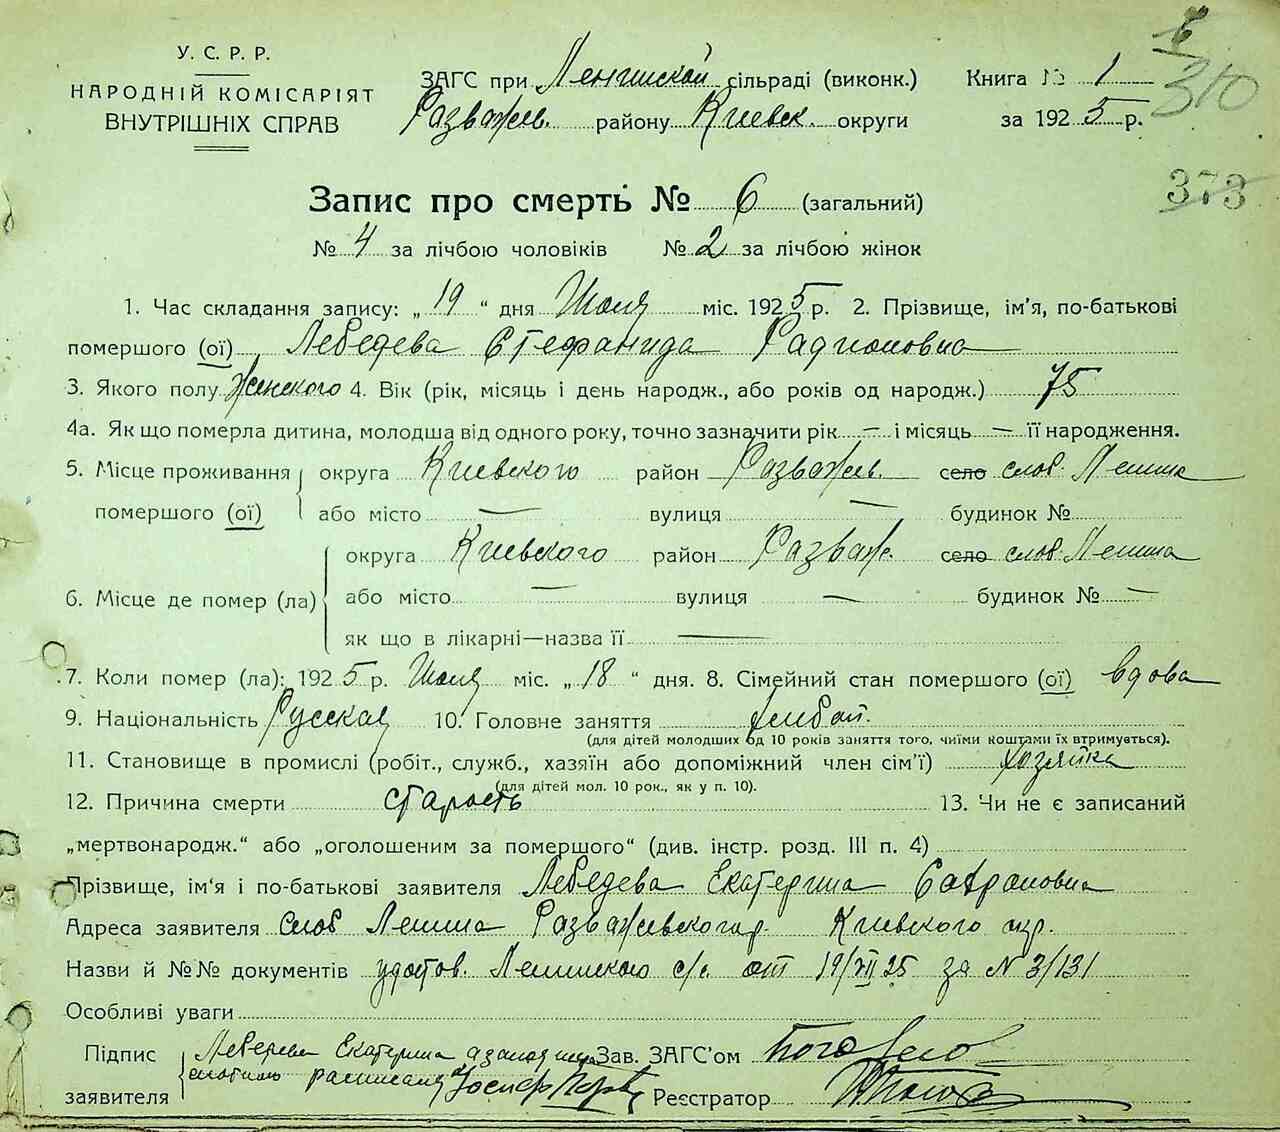 У. С. Р. Р.
НАРОДНІЙ КОМІСАРІЯТ
ВНУТРІШНІХ СПРАВ
ЗАГС при Ленинской сільраді (виконк.) Книга № 1
Розважев. району Киевск. округи за 1925 р.
310
373
Запис про смерть № 6 (загальний)
№ 4 за лічбою чоловіків № 2 за лічбою жінок
1. Час складання запису: „19“ дня Июля міс. 1925 р. 2. Прізвище, ім'я, по-батькові
помершого (ої) Лебедева Стефанида Радионовна
3. Якого полу Женского 4. Вік (рік, місяць і день народж., або років од народж.) 75
4а. Як що померла дитина, молодша від одного року, точно зазначити рік — і місяць — її народження.
5. Місце проживання округа Киевского район Розважев. село слоб. Ленина
помершого (ої) або місто — вулиця — будинок №
округа Киевского район Розваж. село слоб. Ленина
6. Місце де помер (ла) або місто — вулиця — будинок № —
як що в лікарні—назва її —
7. Коли помер (ла): 1925 р. Июля міс. „18“ дня. 8. Сімейний стан помершого (ої) вдова
9. Національність Русская 10. Головне заняття хлебоп.
(для дітей молодших од 10 років заняття того, чиїми коштами їх втримується).
11. Становище в промислі (робіт., служб., хазяїн або допоміжний член сім'ї) хозяйка
(для дітей мол. 10 рок., як у п. 10).
12. Причина смерти старость 13. Чи не є записаний
„мертвонародж.“ або „оголошеним за помершого“ (див. інстр. розд. III п. 4)
Прізвище, ім'я і по-батькові заявителя Лебедева Екатерина Сафроновна
Адреса заявителя Слоб Ленина Розважевского р. Киевского окр.
Назви й №№ документів удостов. Ленинского с/с. от 19/VII 25 за N 3/131
Особливі уваги
Підпис Лебедева Екатерина а за Зав. ЗАГС'ом
заявителя Реєстратор